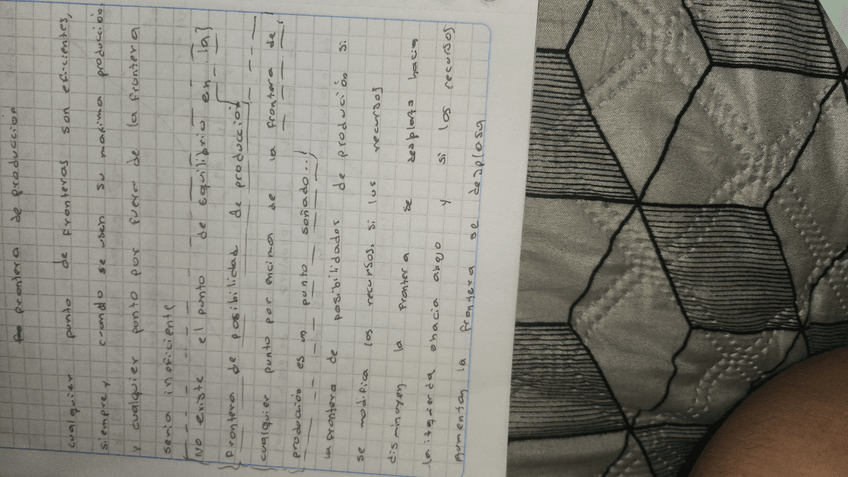 frontera de produccion
cualquier punto de fronteras son eficientes,
siempre y cuando se usen su maxima producción
y cualquier punto por fuera de la frontera
seria ineficiente
(No existe el punto de equilibrio en la)
frontera de posibilidad de producción
cualquier punto por encima de la frontera de
producción es un punto soñado...)
la frontera de posibilidades de produción si
se modifica los recursos, si los recursos
disminuyen la frontera se desplaza hacia
la izquierda o hacia abajo y si los recursos
aumentan la frontera se desplasa